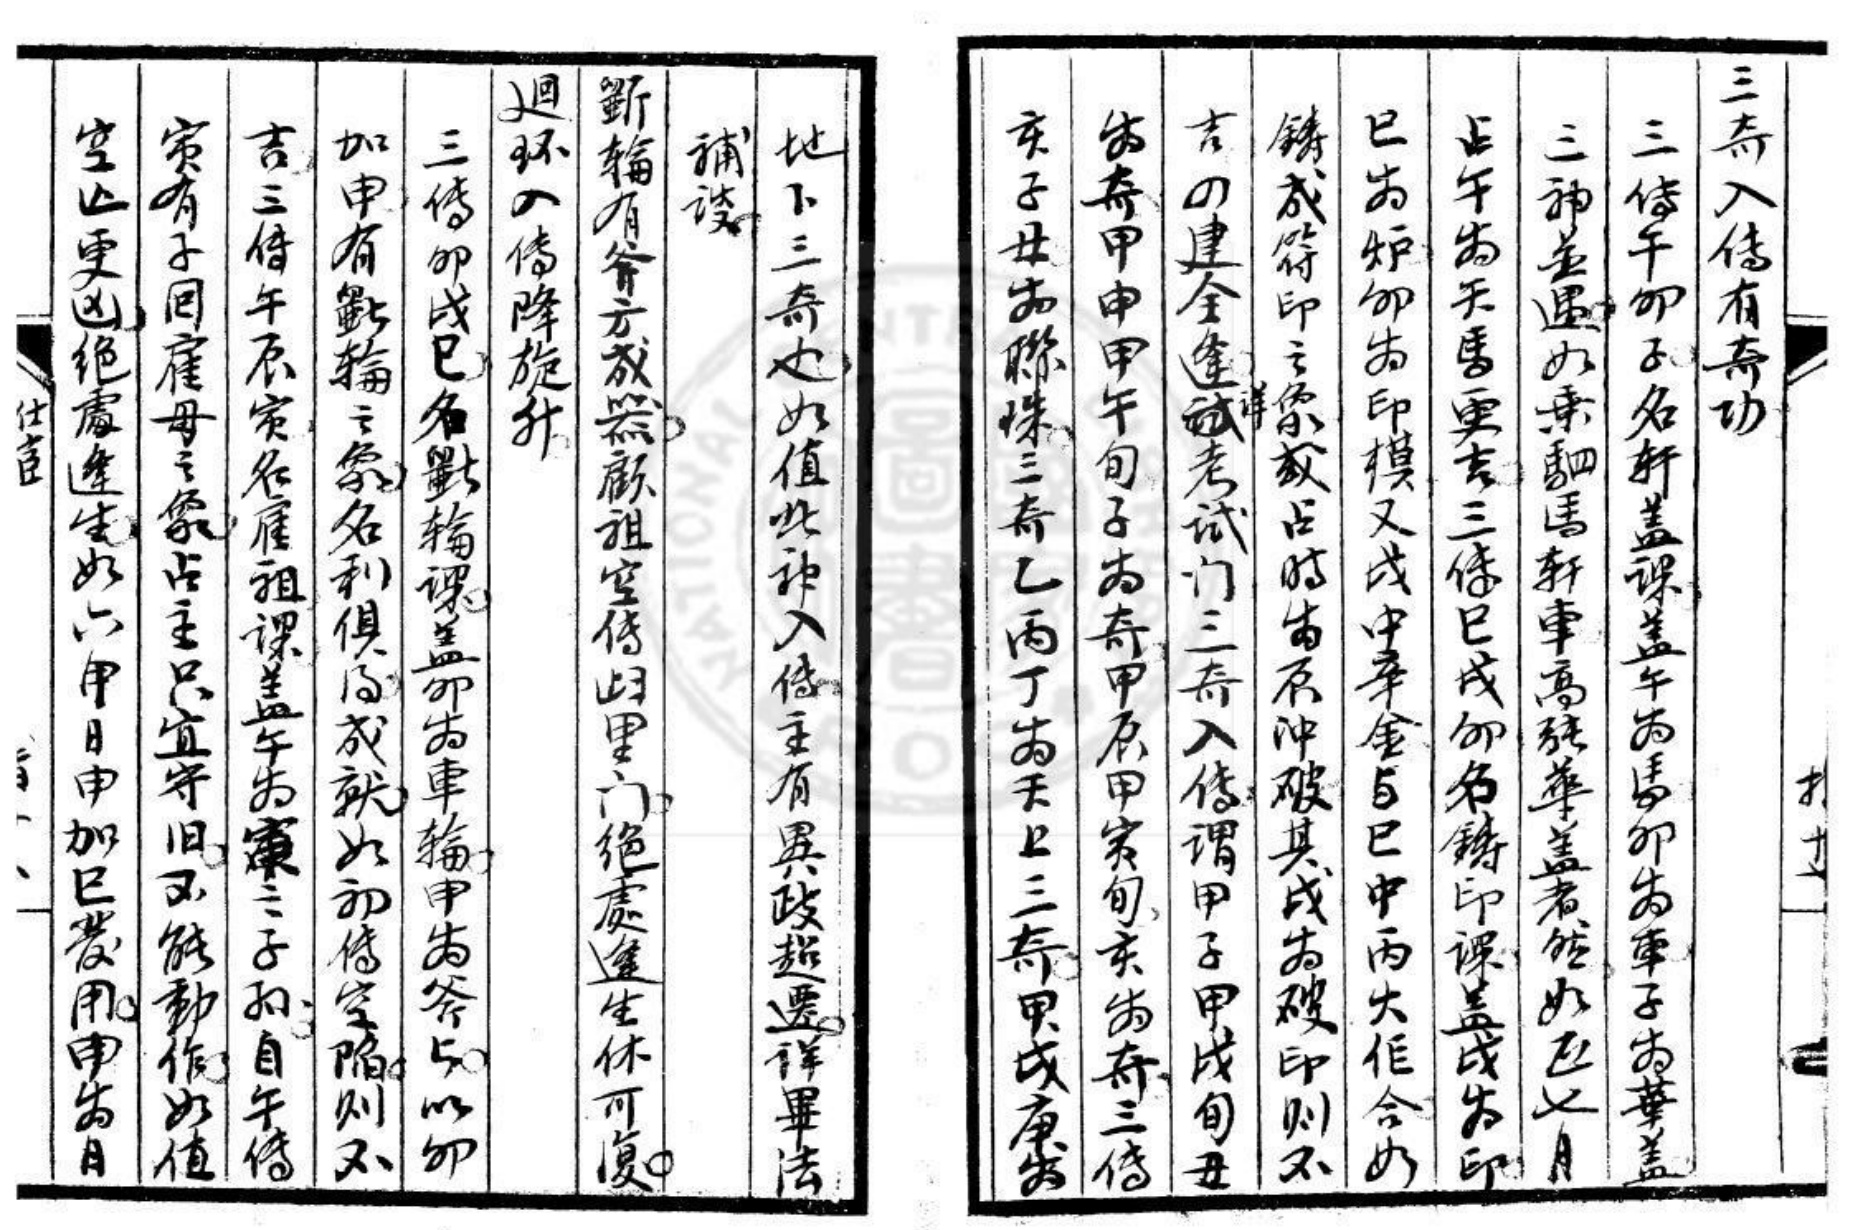 三奇入傳有奇功
三傳午卯子名軒盖課盖午为馬卯为車子为華盖
三神並遇如乘駟馬軒車高張華盖者然如正七月
占午为天馬更吉三傳巳戌卯名鑄印課盖戌为印
巳为炉卯为印模又戌中辛金与巳中丙火作合如
鑄成符印之象或占時为辰冲破其戌为破印则不
吉四建全逢詳考试门三奇入傳謂甲子甲戌旬丑
为奇甲申甲午旬子为奇甲辰甲寅旬亥为奇三傳
亥子丑为聯珠三奇乙丙丁为天上三奇甲戊庚为
地下三奇也如值此神入傳主有異政超遷詳畢法
補談
斲輪有斧方成器顧祖空傳归里门絕處逢生休可復
迴环入傳降旋升
三傳卯戌巳名斲輪課盖卯为車輪申为斧斤以卯
加申有斲輪之象名利俱得成就如初傳空陷则不
吉三傳午辰寅名顧祖課盖午为寅之子孙自午傳
寅有子回顧母之象占主只宜守旧不能動作如值
空亡更凶絕處逢生如六甲日申加巳發用申为日
仕宦